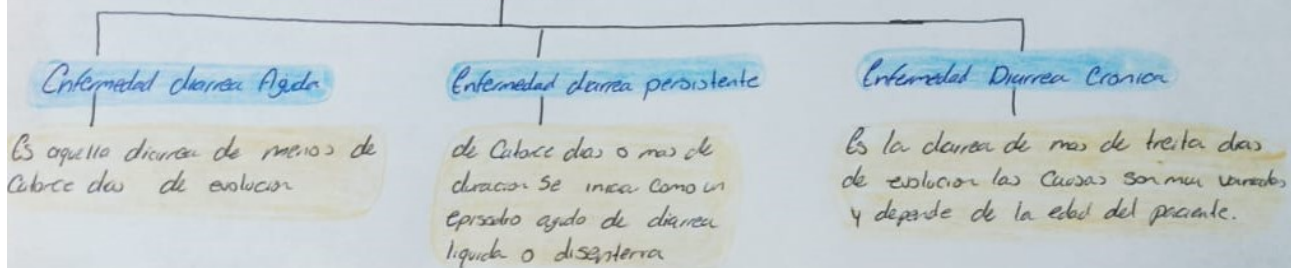 Enfermedad diarrea Aguda
Es aquella diarrea de menos de
Catorce dias de evolucion
Enfermedad diarrea persistente
de Catorce dias o mas de
duracion Se inicia Como un
episodio agudo de diarrea
liquida o disenterra
Enfermedad Diarrea Cronica
Es la diarrea de mas de treita dias
de evolucion las Causas son muy variadas
y depende de la edad del paciente.